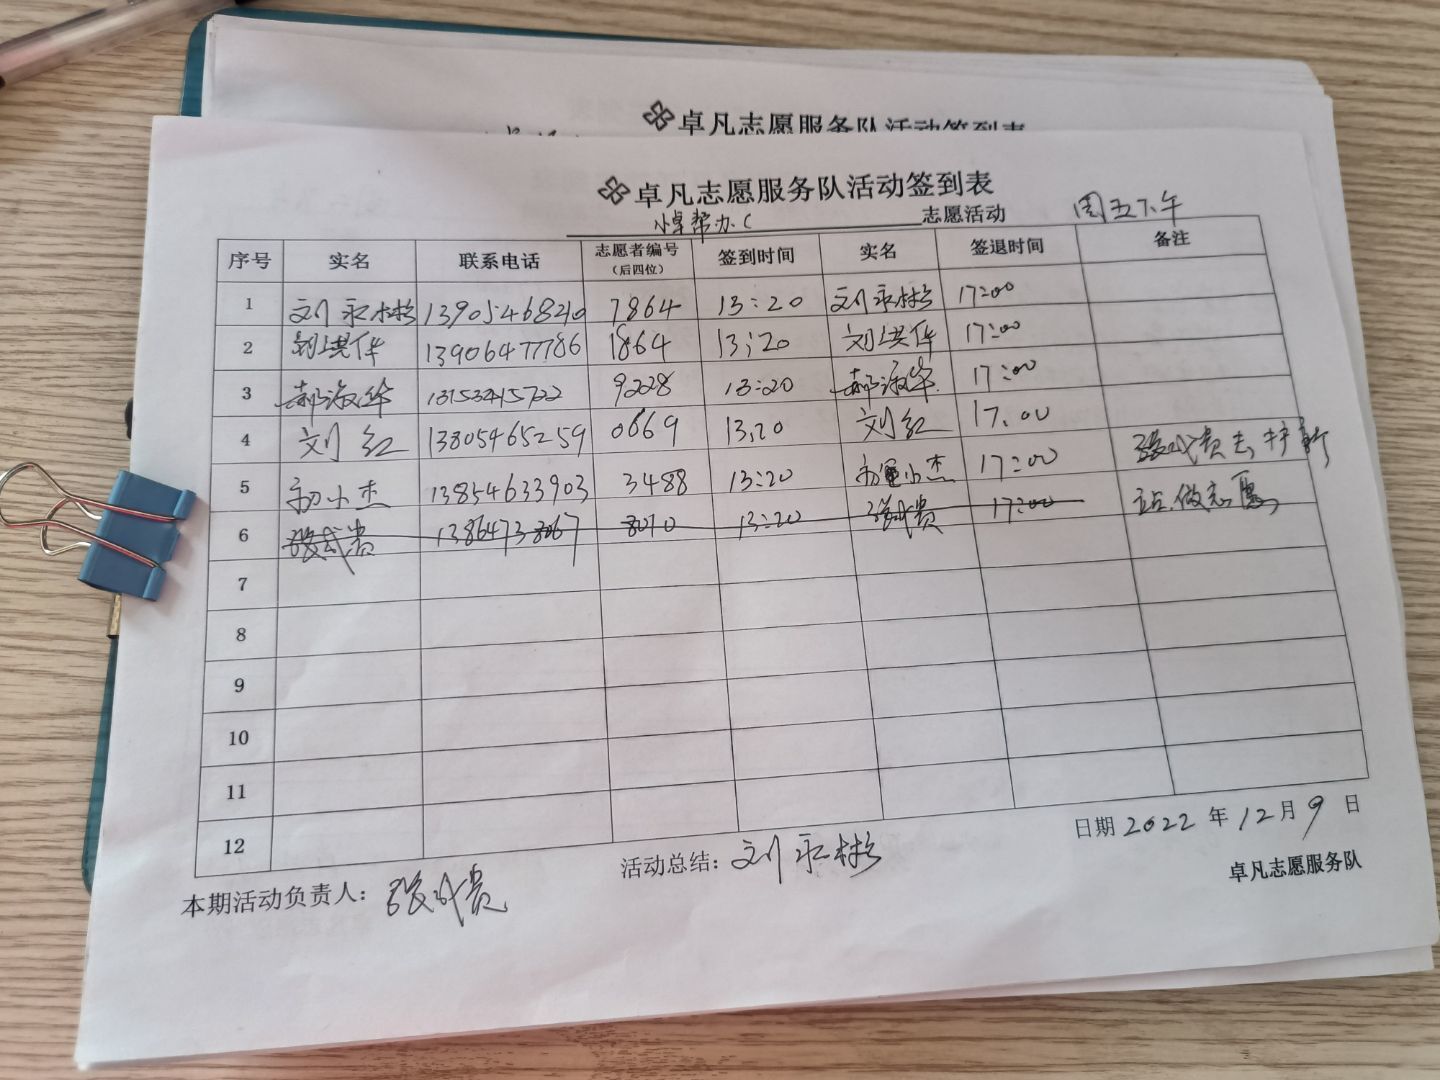 卓凡志愿服务队活动签到表
卓凡志愿服务队活动签到表
小卓帮办 志愿活动 周五下午
序号 实名 联系电话 志愿者编号（后四位） 签到时间 实名 签退时间 备注
1 刘永彬 13905468210 7864 13:20 刘永彬 17:00
2 刘洪华 13906477786 1864 13:20 刘洪华 17:00
3 郝淑华 9228 13:20 郝淑华 17:00
4 刘红 13805465259 0669 13.20 刘红 17.00
5 初小杰 13854633903 3488 13:20 初小杰 17:00 张成贵去
6 张成贵 13864733067 8010 13:20 张成贵 17:00 站做志愿
7
8
9
10
11
12
本期活动负责人：张成贵 活动总结：刘永彬 日期 2022 年 12 月 9 日
卓凡志愿服务队